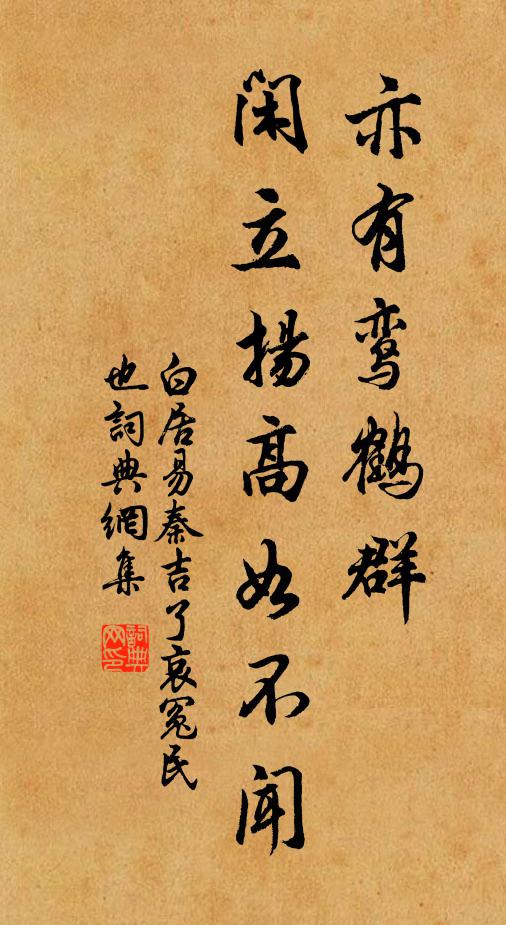 亦有鸾鹤群
闲立揚高如不闻
白居易秦吉了哀冤民
也詞典網集
詞典
网印